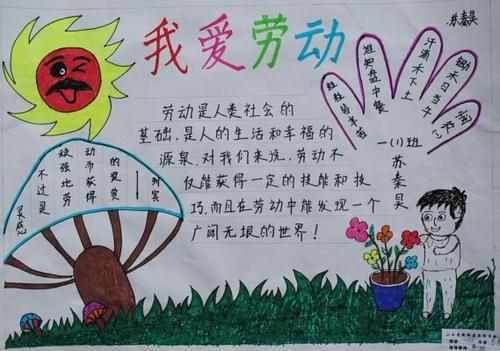 苏秦昊
我爱劳动
锄禾日当午
汗滴禾下土
谁知盘中餐
粒粒皆辛苦
一(1)班
苏秦昊
劳动是人类社会的
基础,是人的生活和幸福的
源泉,对我们来说,劳动不
仅能获得一定的技能和技
巧,而且在劳动中能发现一个
广阔无垠的世界!
灵感
不过是
顽强地劳
动而获得
的奖赏
——列宾